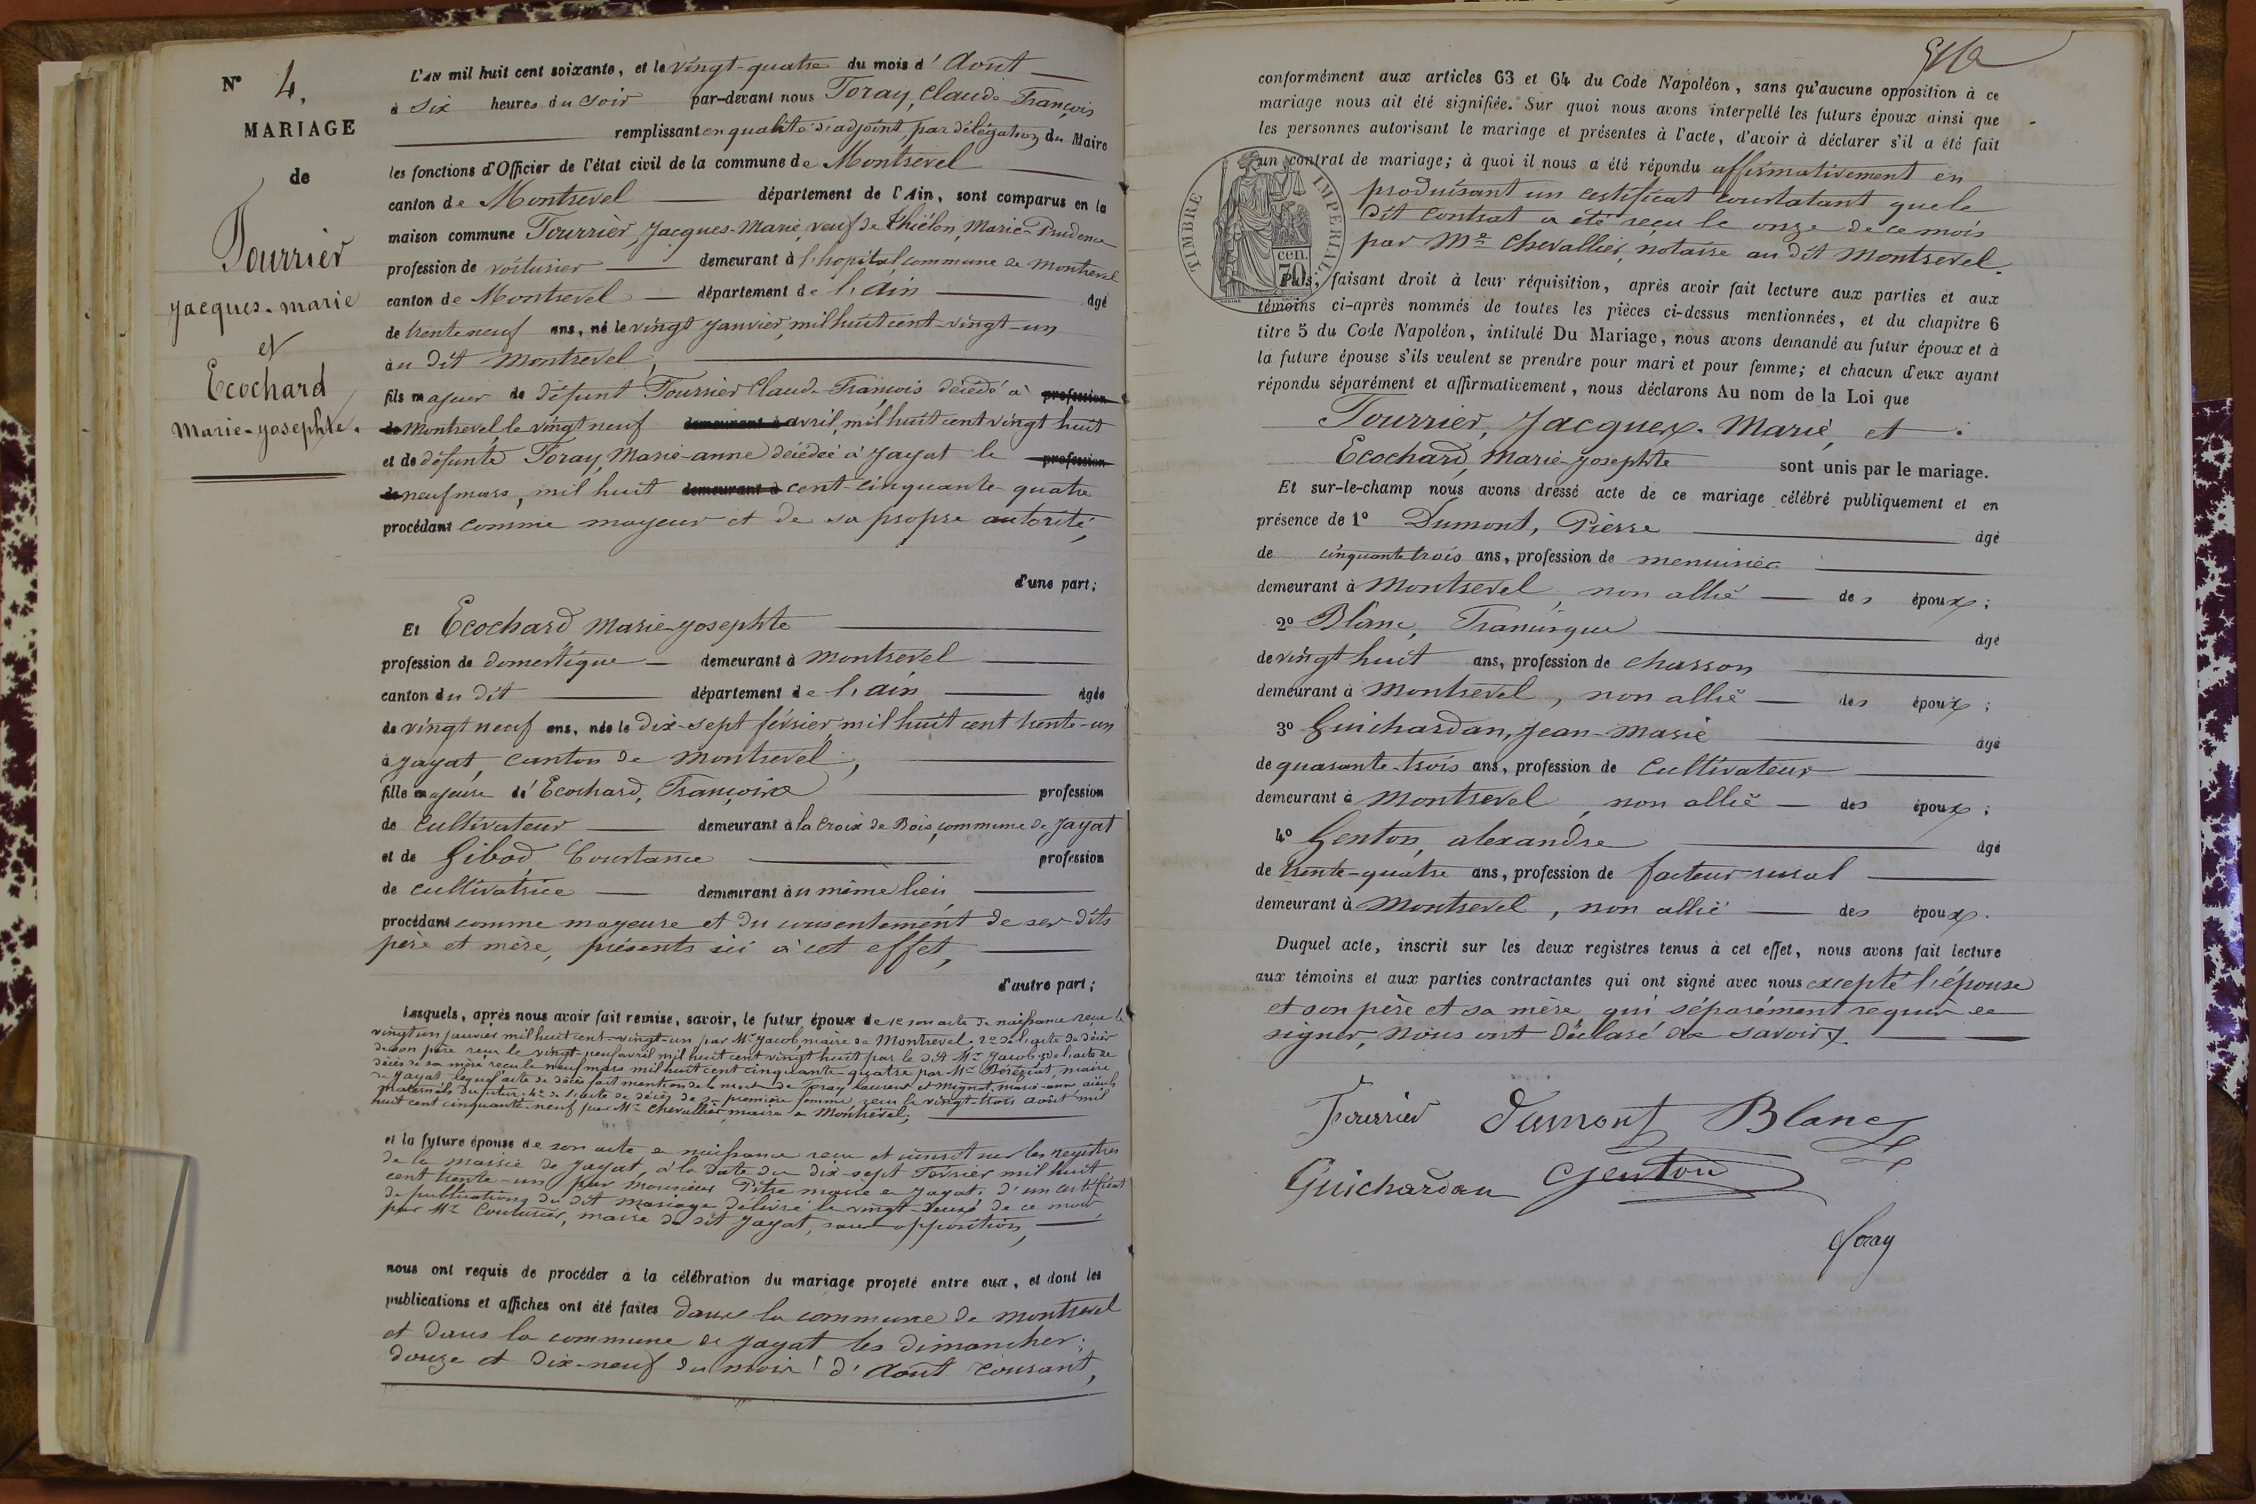 N° 4.
MARIAGE
de
Fourrier
Jacques-marie
et
Ecochard
Marie-josephte.
L'AN mil huit cent soixante, et le vingt-quatre du mois d'Août
à six heures du soir par-devant nous Foray, Claude-François
remplissant en qualité d'adjoint, par délégation du Maire
les fonctions d'Officier de l'état civil de la commune de Montrevel
canton de Montrevel département de l'Ain, sont comparus en la
maison commune Fourrier, Jacques-Marie, veuf de Thiélon, Marie-Prudence
profession de voiturier demeurant à l'hopital, commune de Montrevel
canton de Montrevel département de l'ain âgé
de trente neuf ans, né le vingt janvier, mil huit cent-vingt-un
au dit Montrevel,
fils majeur de défunt Fourrier Claude-François décédé à profession
de Montrevel, le vingt neuf demeurant à avril, mil huit cent vingt huit
et de défunte Foray, Marie-anne décédée à Jayat le profession
de neuf mars, mil huit demeurant à cent-cinquante-quatre
procédant comme mayeur et de sa propre autorité,
d'une part;
Et Ecochard Marie-josephte
profession de domestique demeurant à Montrevel
canton du dit département de l'ain âgée
de vingt neuf ans, née le dix-sept février, mil huit cent trente-un
à Jayat, canton de Montrevel,
fille majeure de Ecochard, Françoise profession
de cultivateur demeurant à la Croix de Bois, commune de Jayat
et de Gibod, Constance profession
de cultivatrice demeurant au même lieu,
procédant comme mayeure et du consentement de ses dits
père et mère, présents ici à cet effet,
d'autre part;
Lesquels, après nous avoir fait remise, savoir, le futur époux de 1° son acte de naissance reçu le
vingt un janvier mil huit cent-vingt-un par Mr Jacob, maire de Montrevel. 2° de l'acte de décès
de son père reçu le vingt-neuf avril mil huit cent vingt huit par le dit Mr Jacob. 3° de l'acte de
décès de sa mère reçu le neuf mars mil huit cent cinquante quatre par Mr Béréziat, maire
de Jayat, lequel acte de décès fait mention de la mort de Foray laurent et Mignot, marie-anne aïeuls
maternels du futur. 4° de l'acte de décès de sa première femme, reçu le vingt-trois août mil
huit cent cinquante-neuf par Mr Chevallier, maire de Montrevel;
et la future épouse de son acte de naissance reçu et inscrit sur les registres
de la mairie de Jayat, à la date du dix-sept Février mil huit
cent trente-un par monsieur Pitre maire de Jayat; d'un certificat
de publications du dit mariage délivré le vingt-deux de ce mois,
par Mr Couturier, maire du dit Jayat, sans opposition,
nous ont requis de procéder à la célébration du mariage projeté entre eux, et dont les
publications et affiches ont été faites dans la commune de Montrevel
et dans la commune de Jayat les dimanches;
douze et dix-neuf du mois d'Août courant,
conformément aux articles 63 et 64 du Code Napoléon, sans qu'aucune opposition à ce
mariage nous ait été signifiée. Sur quoi nous avons interpellé les futurs époux ainsi que
les personnes autorisant le mariage et présentes à l'acte, d'avoir à déclarer s'il a été fait
un contrat de mariage; à quoi il nous a été répondu affirmativement en
produisant un certificat constatant que le
dit contrat a été reçu le onze de ce mois
par Me Chevallier, notaire au dit Montrevel.
TIMBRE IMPERIAL
cen. 70
Puis, faisant droit à leur réquisition, après avoir fait lecture aux parties et aux
témoins ci-après nommés de toutes les pièces ci-dessus mentionnées, et du chapitre 6
titre 5 du Code Napoléon, intitulé Du Mariage, nous avons demandé au futur époux et à
la future épouse s'ils veulent se prendre pour mari et pour femme; et chacun d'eux ayant
répondu séparément et affirmativement, nous déclarons Au nom de la Loi que
Fourrier, Jacques-Marie, et
Ecochard, Marie-josephte sont unis par le mariage.
Et sur-le-champ nous avons dressé acte de ce mariage célébré publiquement et en
présence de 1° Dumont, Pierre âgé
de cinquante trois ans, profession de menuisier
demeurant à Montrevel, non allié des époux;
2° Blanc, Franc̣isque âgé
de vingt huit ans, profession de charron
demeurant à Montrevel, non allié des époux;
3° Guichardan, Jean-Marie âgé
de quarante-trois ans, profession de Cultivateur
demeurant à Montrevel, non allié des époux;
4° Genton, alexandre âgé
de trente-quatre ans, profession de facteur rural
demeurant à Montrevel, non allié des époux.
Duquel acte, inscrit sur les deux registres tenus à cet effet, nous avons fait lecture
aux témoins et aux parties contractantes qui ont signé avec nous excepté l'épouse
et son père et sa mère, qui séparément requis de
signer, nous ont déclaré ne savoir.
Fourrier Dumont Blanc
Guichardan Genton
foray